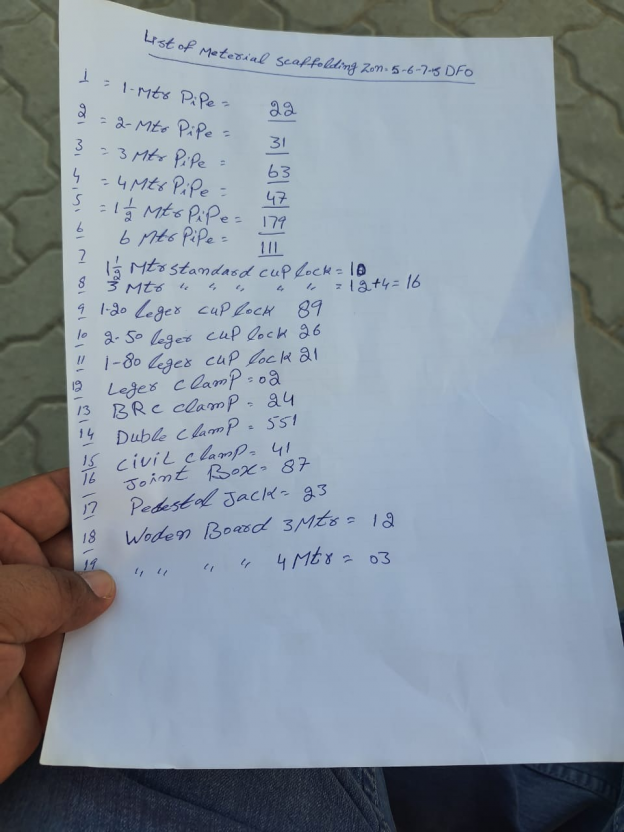 List of Meterial Scaffolding Zon-5-6-7-8 DFO
1 = 1-Mtr PiPe = 22
2 = 2-Mtr PiPe = 31
3 = 3 Mtr PiPe = 63
4 = 4 Mtr PiPe = 47
5 = 1 1/2 Mtr PiPe = 179
6 6 Mtr PiPe = 111
7 1 1/2 Mtr standard cup lock = 10
8 3 Mtr " " " " " = 12+4=16
9 1-20 leger cup lock 89
10 2-50 leger cup lock 26
11 1-80 leger cup lock 21
12 Leger clamp = 02
13 BRC clamp = 24
14 Duble clamp = 551
15 civil clamp = 41
16 Joint Box = 87
17 Pedestal Jack = 23
18 Woden Board 3 Mtr = 12
19 " " " " 4 Mtr = 03